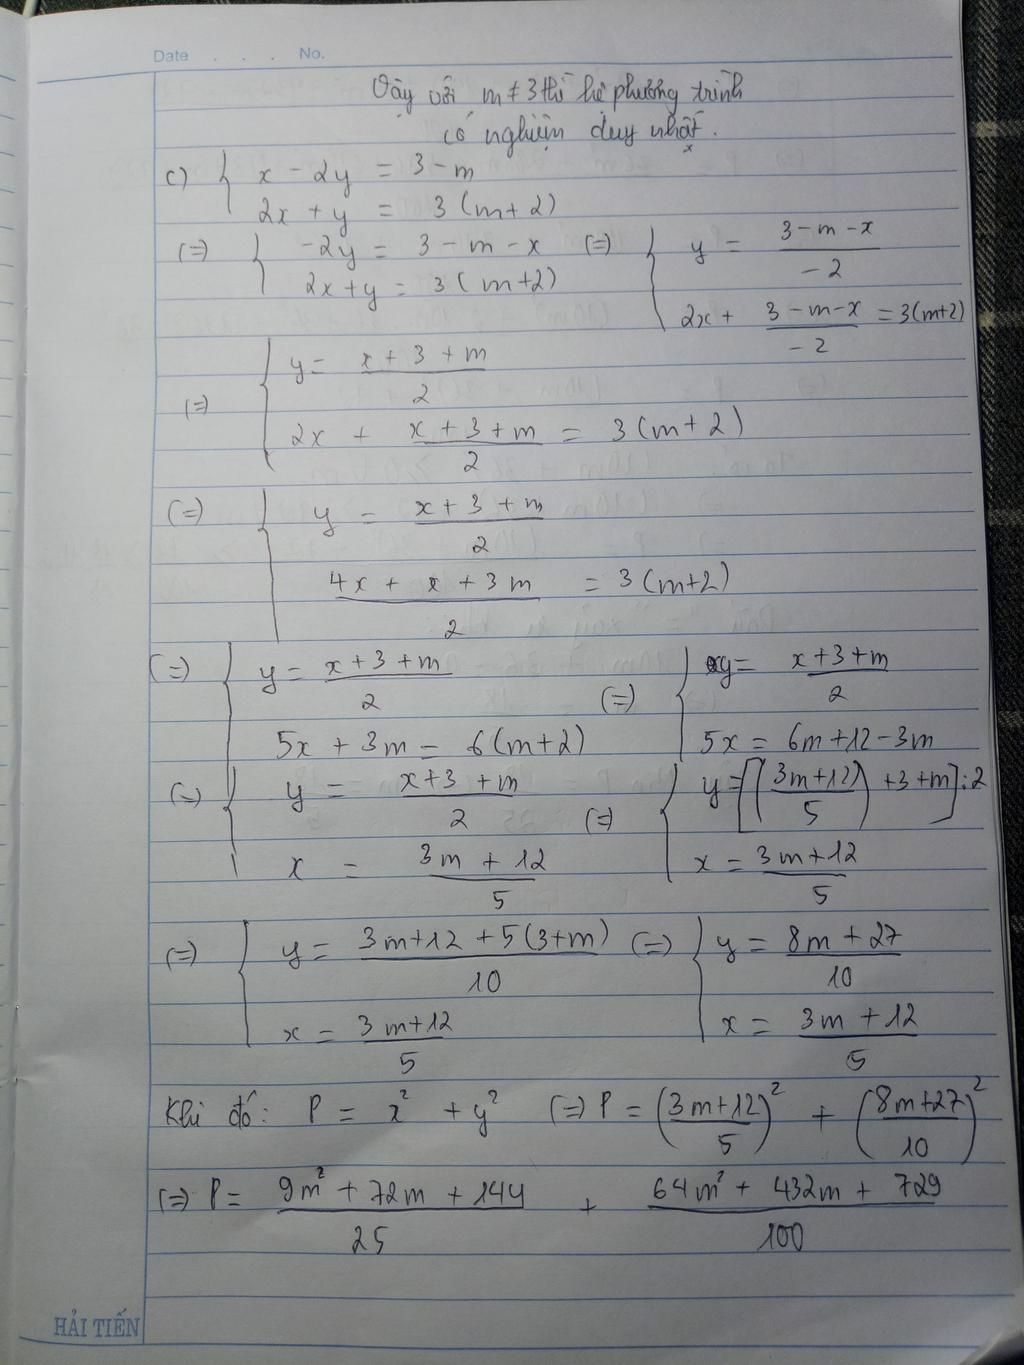 Date . . . . No.
Vậy với m ≠ 3 thì hệ phương trình
có nghiệm duy nhất.
c) { x - 2y = 3 - m
2x + y = 3(m+2)
(=) { -2y = 3 - m - x (=) { y = (3 - m - x)/(-2)
2x + y = 3(m+2) 2x + (3 - m - x)/(-2) = 3(m+2)
(=) { y = (x + 3 + m)/2
2x + (x + 3 + m)/2 = 3(m+2)
(=) { y = (x + 3 + m)/2
(4x + x + 3m)/2 = 3(m+2)
(=) { y = (x + 3 + m)/2 (=) { y = (x + 3 + m)/2
5x + 3m = 6(m+2) 5x = 6m + 12 - 3m
(=) { y = (x + 3 + m)/2 (=) { y = [((3m+12)/5) + 3 + m] : 2
x = (3m + 12)/5 x = (3m+12)/5
(=) { y = (3m+12 + 5(3+m))/10 (=) { y = (8m + 27)/10
x = (3m+12)/5 x = (3m + 12)/5
Khi đó: P = x² + y² (=) P = ((3m+12)/5)² + ((8m+27)/10)²
(=) P = (9m² + 72m + 144)/25 + (64m² + 432m + 729)/100
HẢI TIẾN